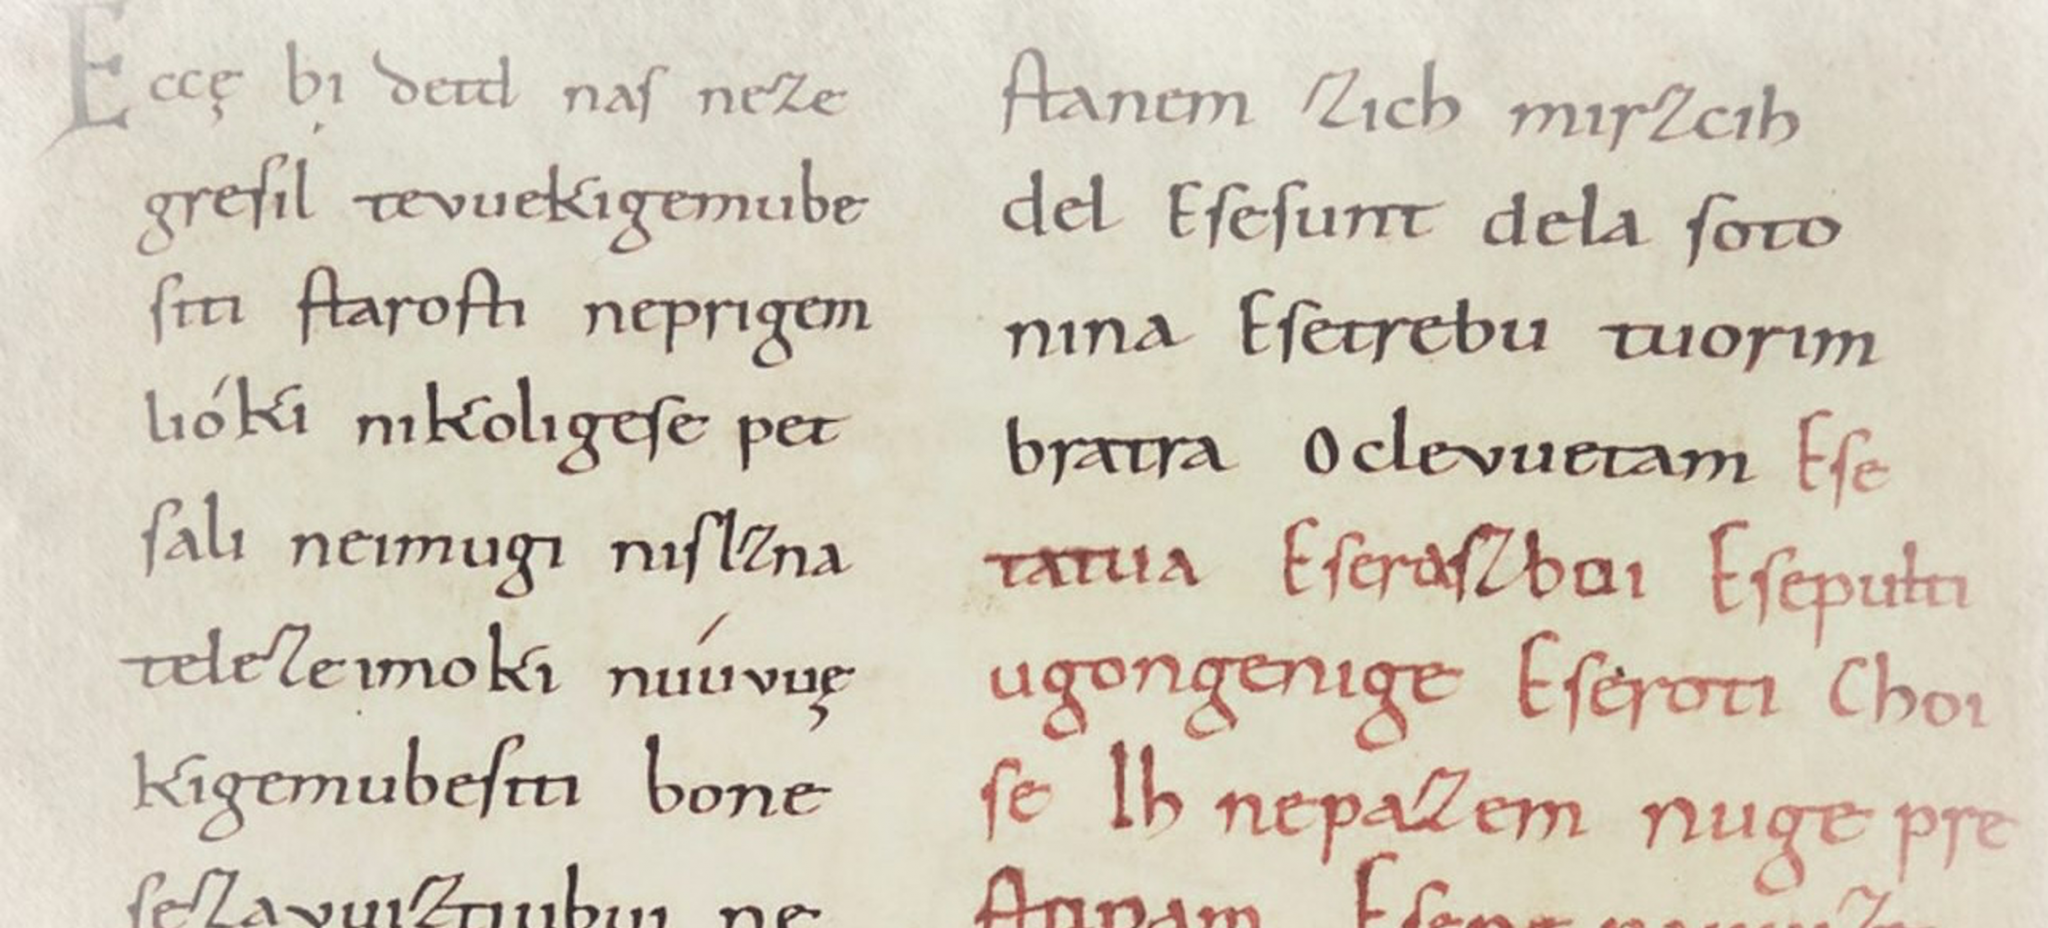 Eccę bi detd naſ neze
greſil tevuekigemube
ſiti ſtaroſti neprigem
lióki nikoligeſe pet
ſali neimugi niſlzna
telezeimoki nuúvuę
kigemubeſiti bone
ſezavuiztiubui ne
ſtanem zich mirzcih
del Eſeſunt dela ſoto
nina Eſetrebu tuorim
bratra Oclevuetam Eſe
tatua Eſeraſzboi Eſepulti
ugongenige Eſeroti Choi
ſe lh nepazem nuge pre
ſtopam Eſene